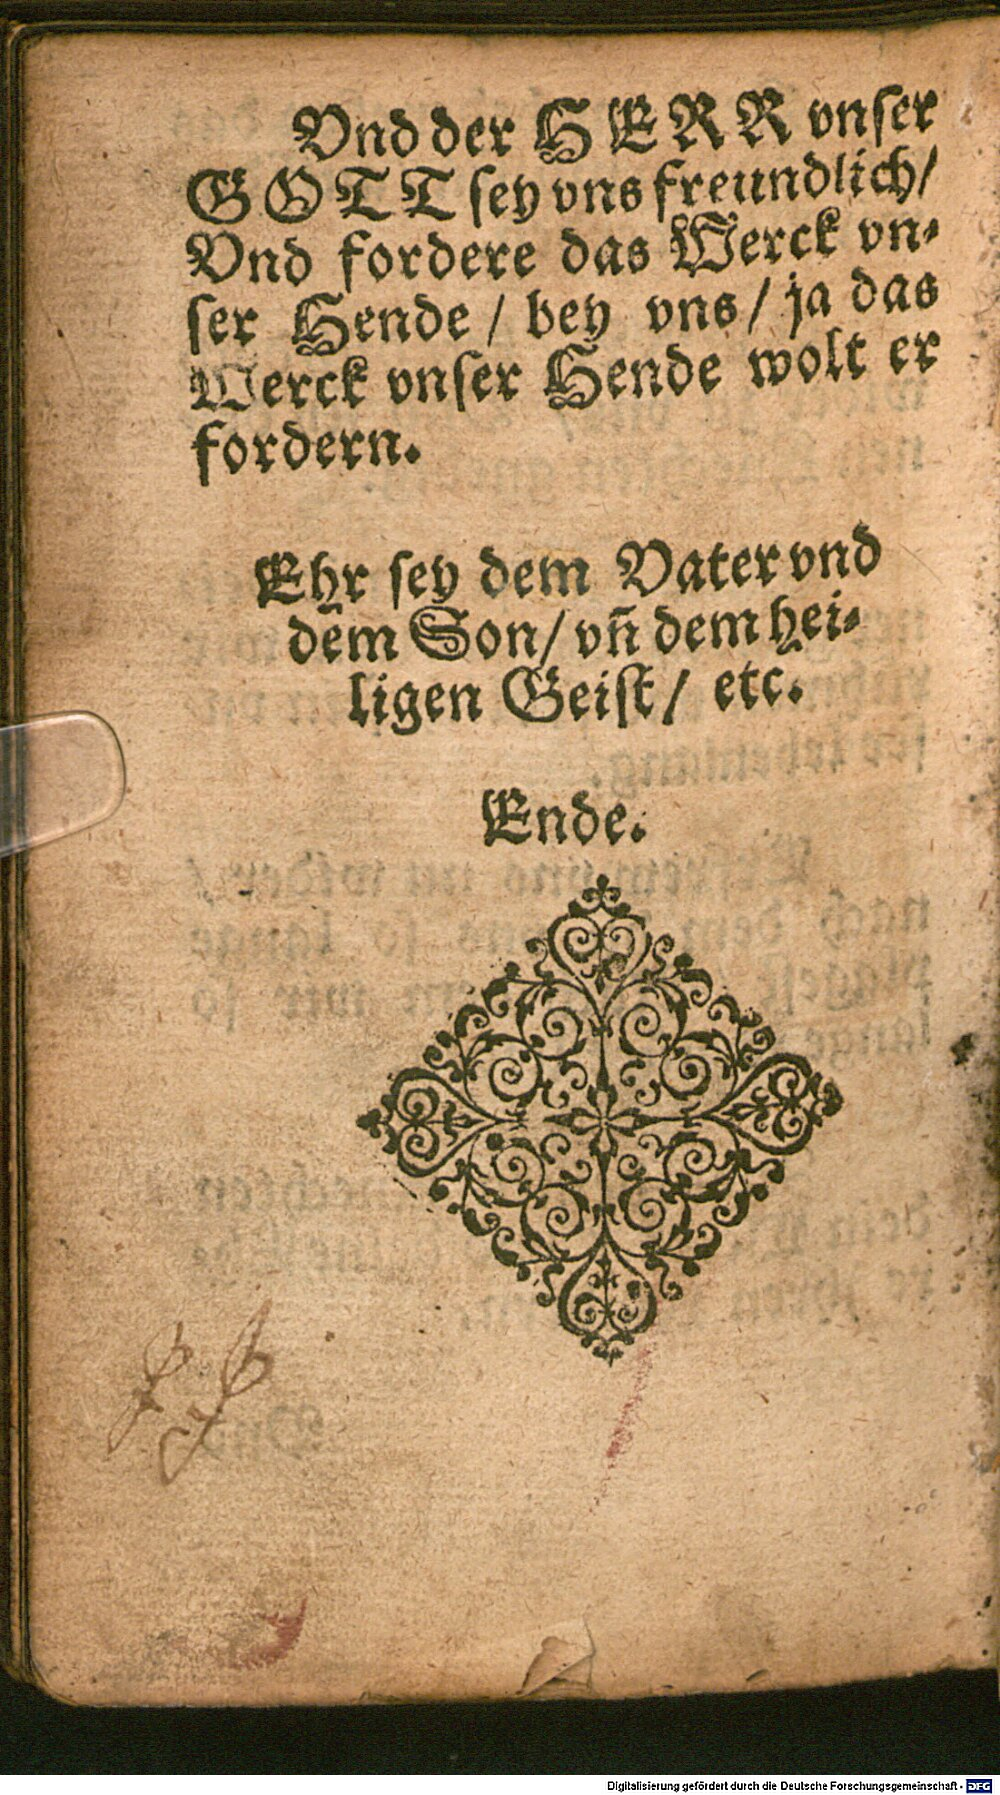 Vnd der HERR vnser
GOTT sey vns freundlich/
Vnd fordere das Werck vn-
ser Hende / bey vns / ja das
Werck vnser Hende wolt er
fordern.
Ehr sey dem Vater vnd
dem Son / vñ dem hei-
ligen Geist / etc.
Ende.
Digitalisierung gefördert durch die Deutsche Forschungsgemeinschaft - DFG